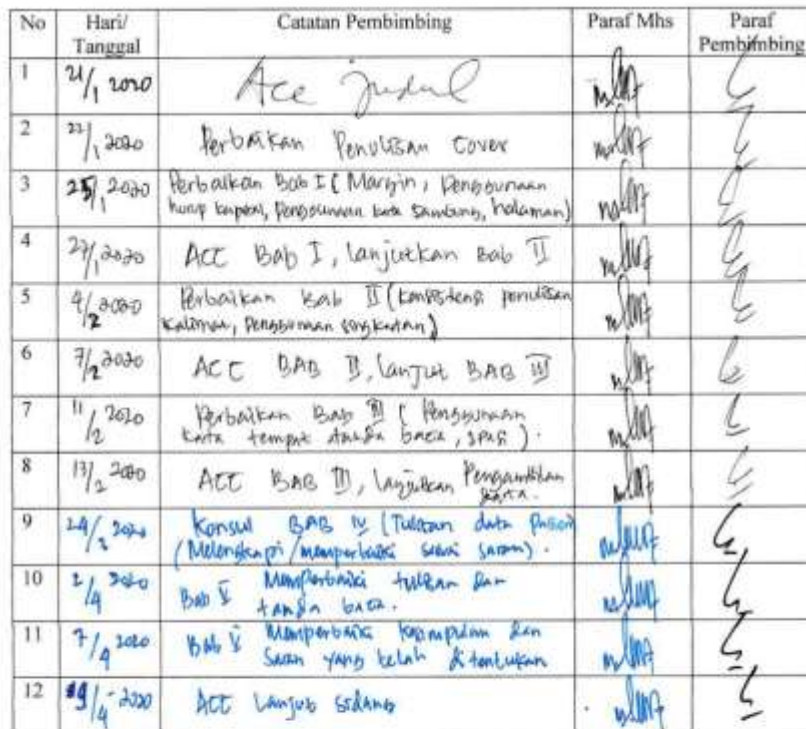 No Hari/ Catatan Pembimbing Paraf Mhs Paraf
Tanggal Pembimbing
1 21/1 2020 Acc judul
2 22/1 2020 Perbaikan Penulisan Cover
3 25/1 2020 Perbaikan Bab I (Margin, Penggunaan
hurup kapital, Penggunaan kata sambung, halaman)
4 27/1 2020 ACC Bab I, lanjutkan Bab II
5 4/2 2020 Perbaikan Bab II (konsistensi penulisan
kalimat, Penggunaan singkatan)
6 7/2 2020 ACC BAB II, lanjut BAB III
7 11/2 2020 Perbaikan Bab III (Penggunaan
kata tempat tanda baca, spasi).
8 13/2 2020 ACC BAB III, lanjutkan Pengambilan
9 24/3 2020 Konsul BAB IV (Tulisan data Pasien)
(Melengkapi/memperbaiki sesuai saran).
10 2/4 2020 Bab V Memperbaiki tulisan dan
tanda baca.
11 7/4 2020 Bab V Memperbaiki kesimpulan dan
Saran yang telah ditentukan
12 9/4 - 2020 ACC Lanjut sidang